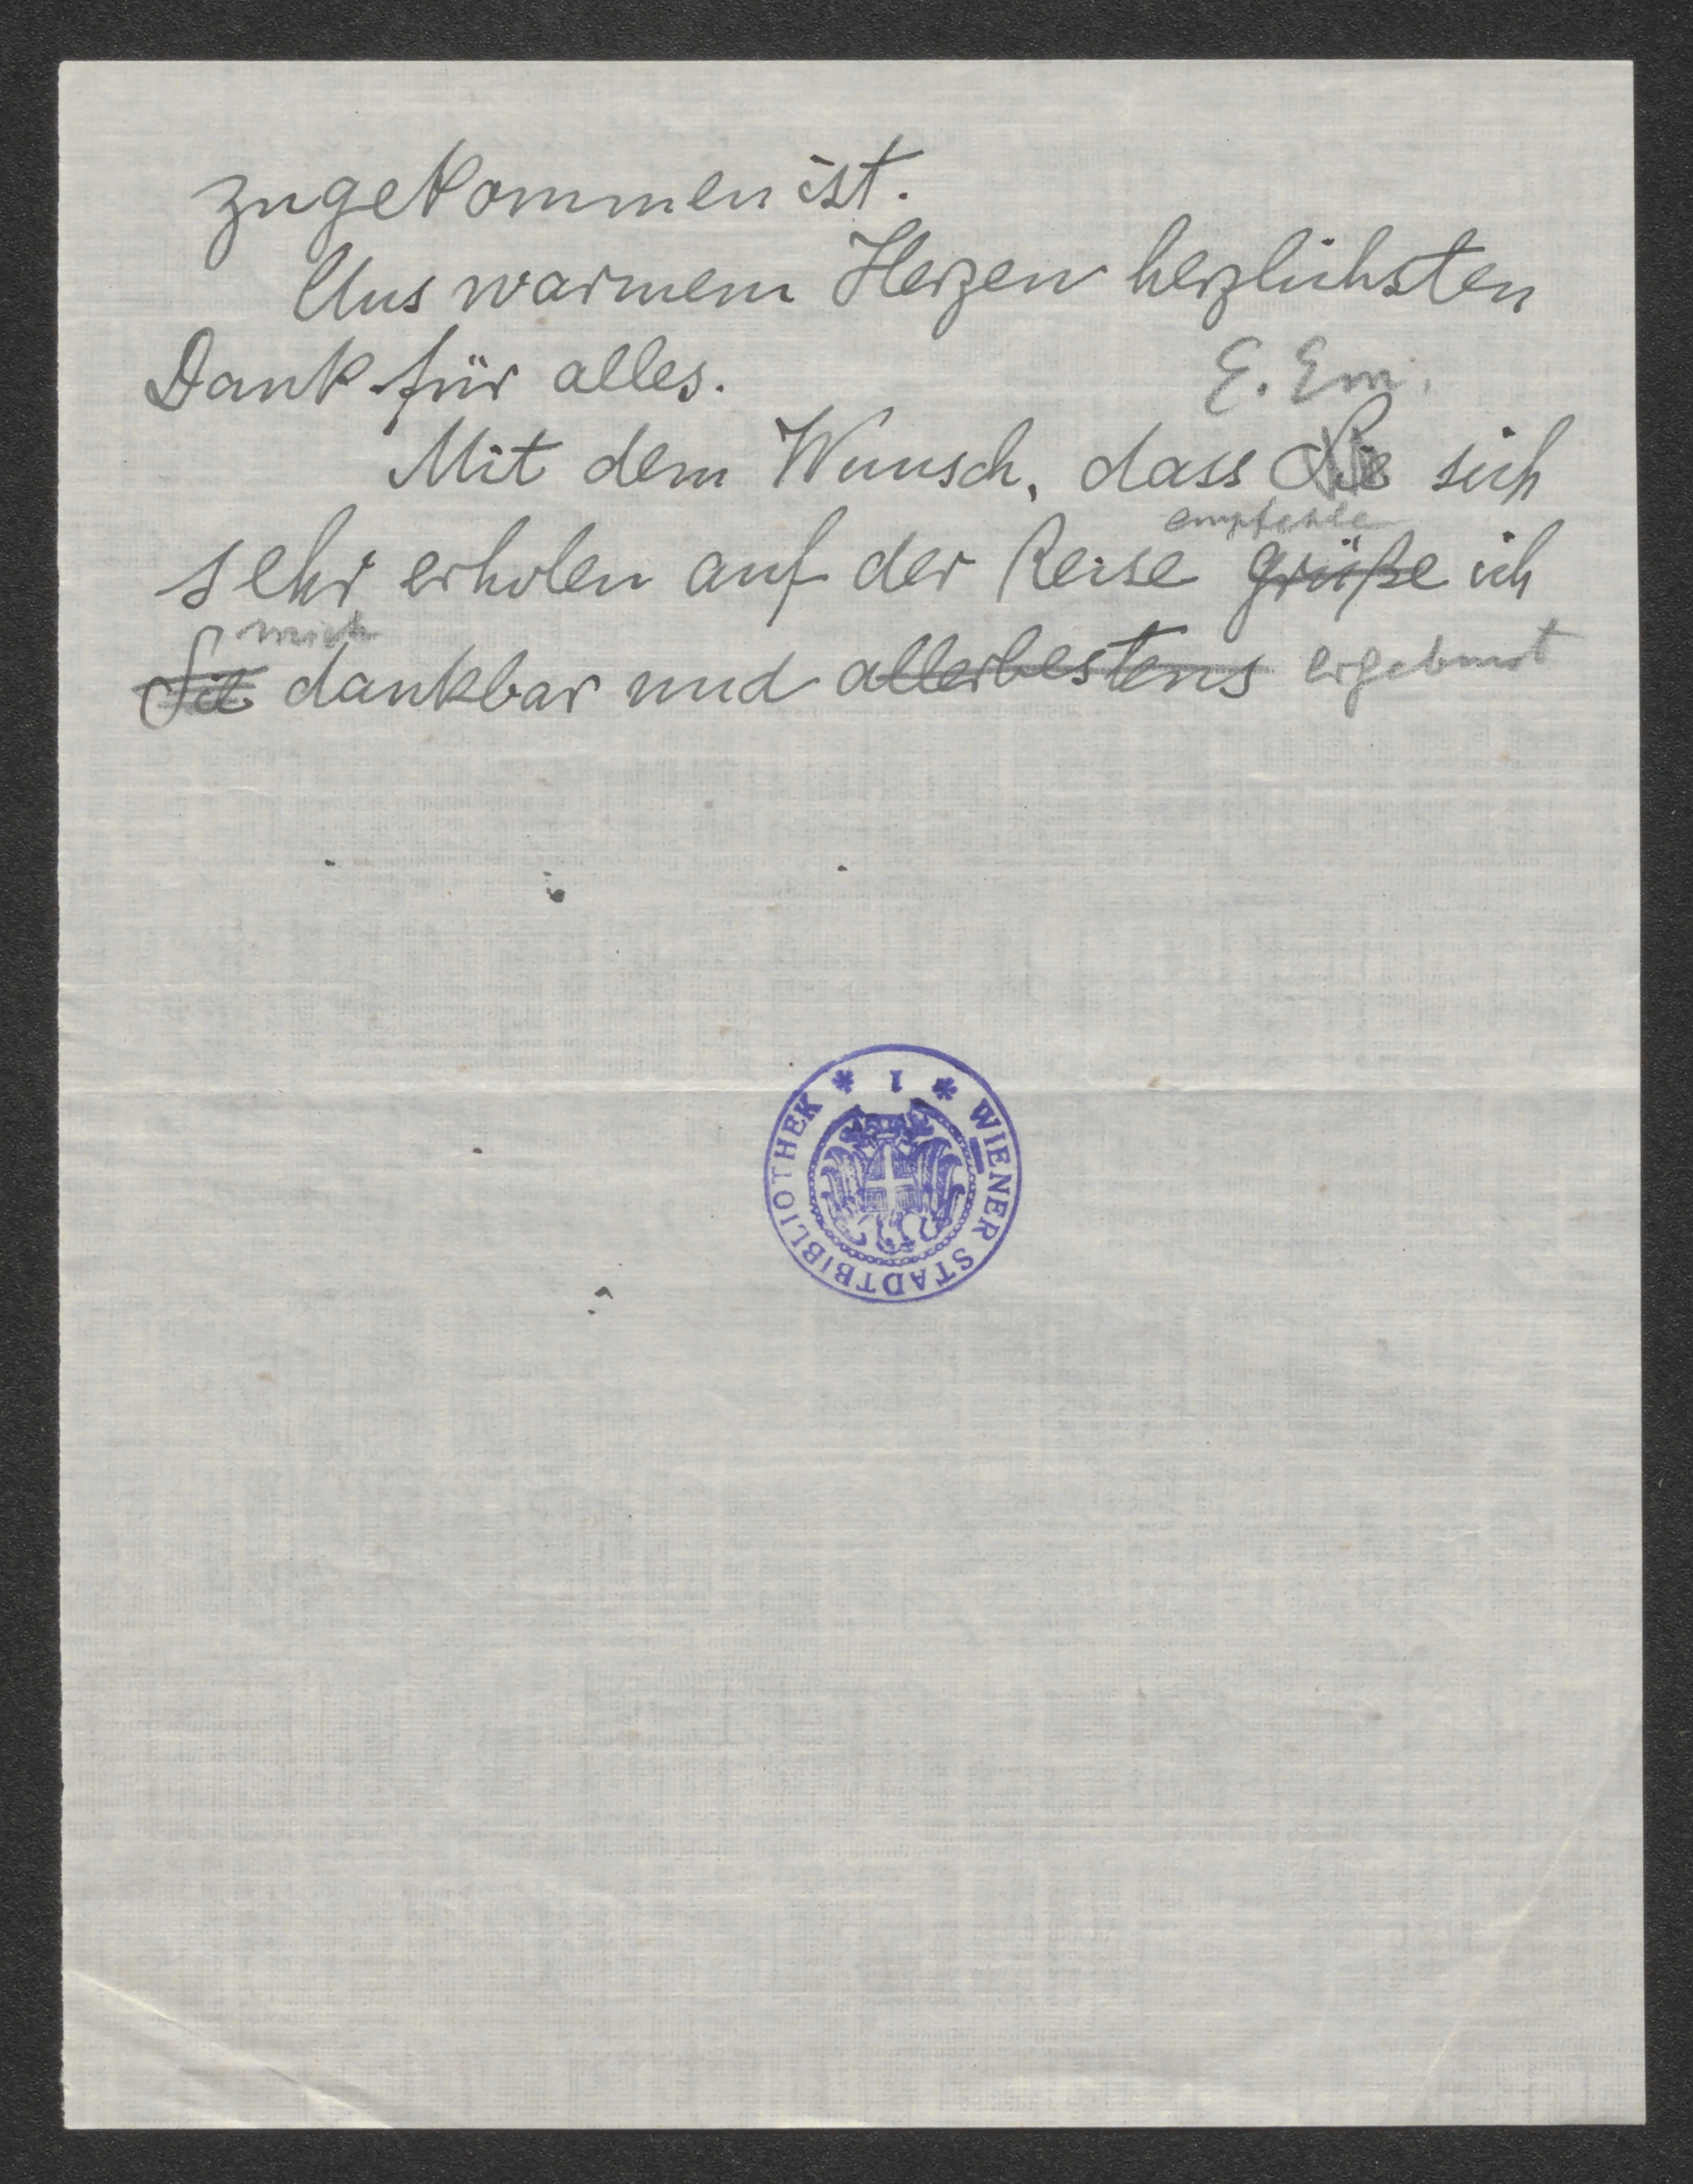 zugekommen ist.
Aus warmem Herzen herzlichsten
Dank für alles.
E. Em.
Mit dem Wunsch, dass Sie sich
empfehle
sehr erholen auf der Reise grüße ich
mich
Sie dankbar und allerbestens ergebenst
* 1 * WIENER STADTBIBLIOTHEK